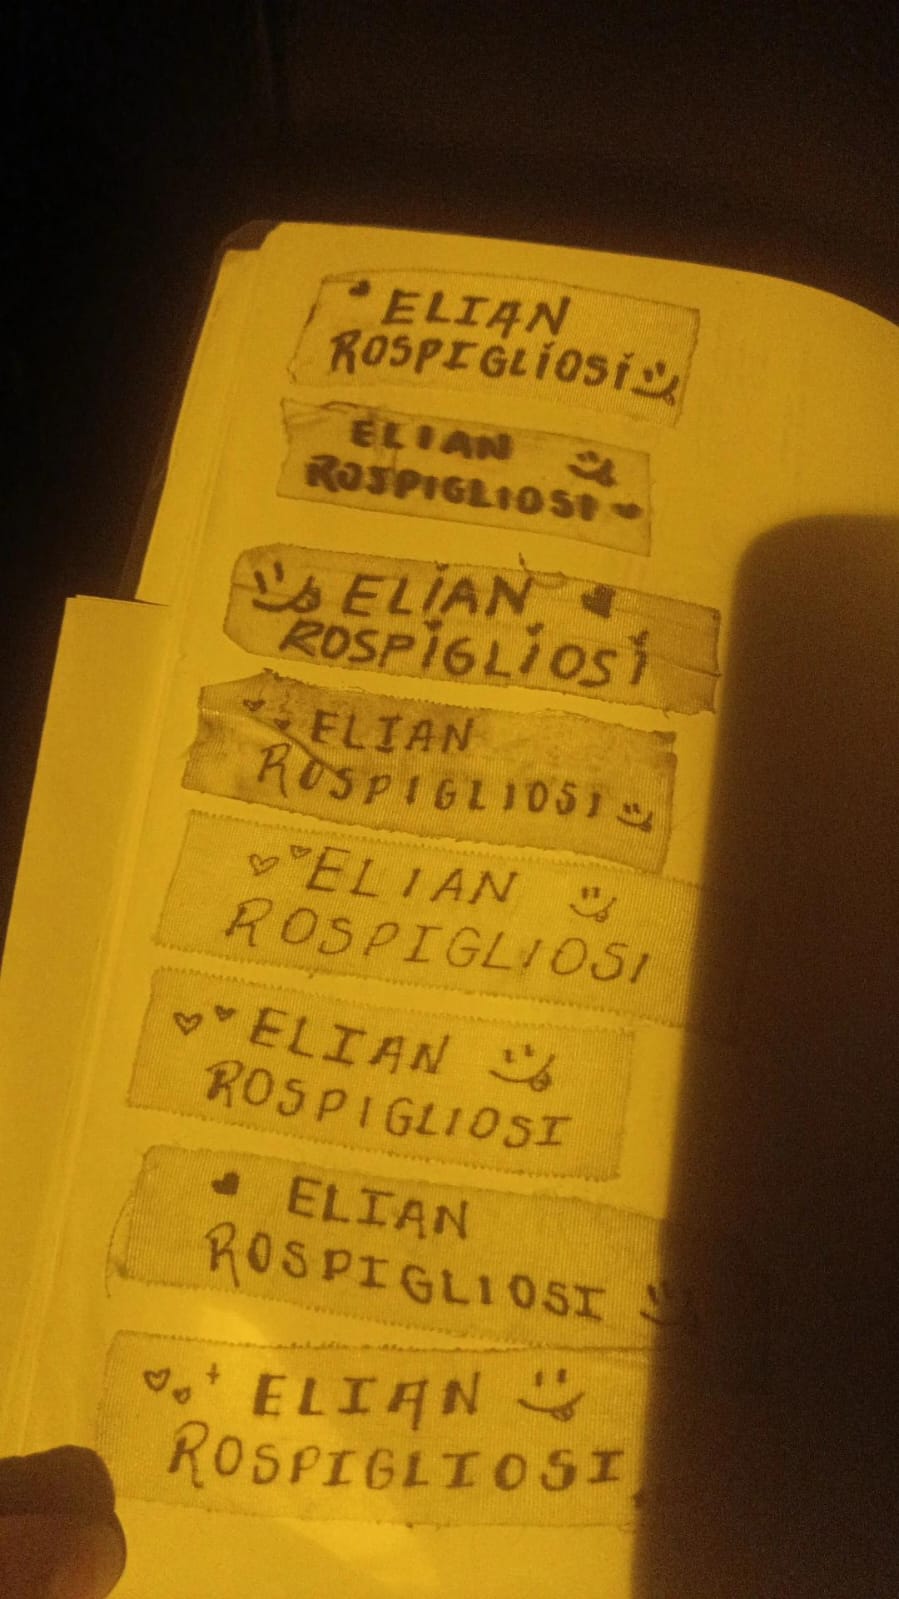 ELIAN
ROSPIGLÍOSÍ
ELIAN
ROSPIGLIOSI
ELİAN
ROSPİGLİOSİ
ELIAN
ROSPIGLIOSI
ELIAN
ROSPIGLIOSI
ELIAN
ROSPIGLIOSI
ELIAN
ROSPIGLIOSI
ELIAN
ROSPIGLIOSI